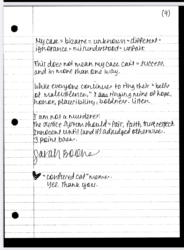 (9)
My case = bizarre = unknown = different =
ignorance = misunderstood = unfair
This does not mean my case cast = success
and in more than one way.
While everyone continues to ring their "bells
of malevolence." I am ringing mine of hope,
honor, plausibility, boldness. Listen.
I am not a murderer.
The justice system should = fair, faith, trust, respect
Innocent until (and if) adjudged otherwise.
I point base.
Sarah Boone
"conferred cat" meme.
Yes. Thank you.